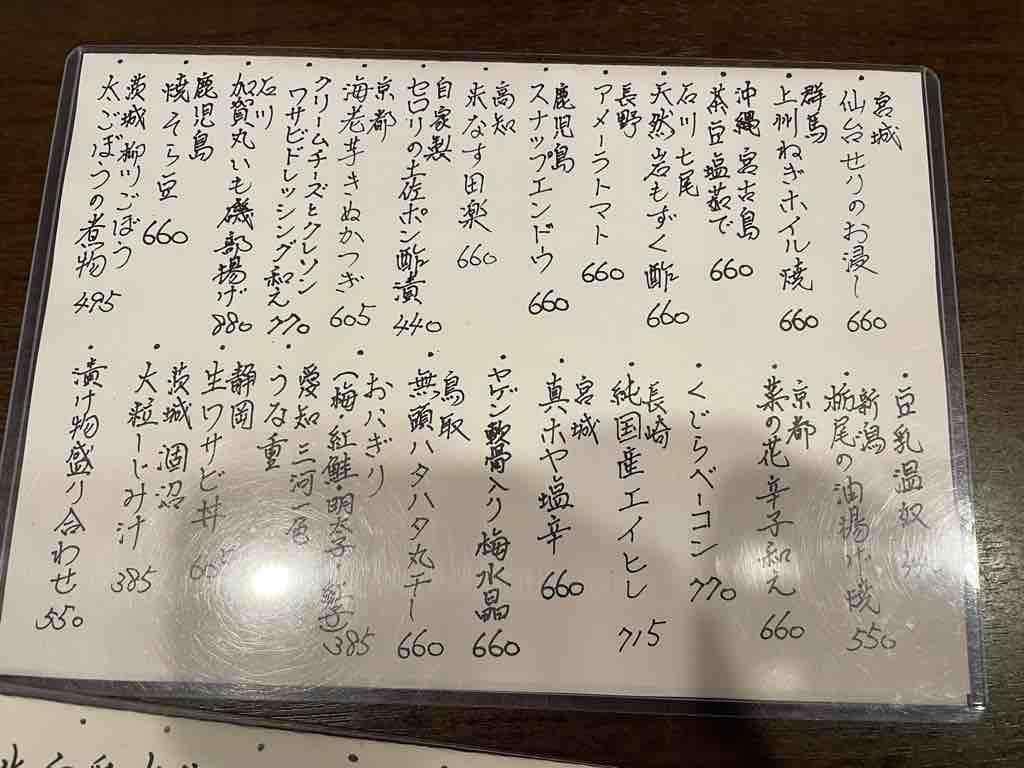 宮城
仙台せりのお浸し 660
群馬
上州ねぎホイル焼 660
沖縄 宮古島
茶豆塩茹で 660
石川 七尾
天然岩もずく酢 660
長野
アメーラトマト 660
鹿児島
スナップエンドウ 660
高知
米なす田楽 660
自家製
セロリの土佐ポン酢漬 440
京都
海老芋きぬかつぎ 605
クリームチーズとクレソン
ワサビドレッシング和え 770
石川
加賀丸いも磯部揚げ 880
鹿児島
焼そら豆 660
茨城 柳川ごぼう
太ごぼうの煮物 495
豆乳温奴
新潟
栃尾の油揚げ焼 550
京都
菜の花辛子和え 660
くじらベーコン 770
長崎
純国産エイヒレ 715
宮城
真ホヤ塩辛 660
ヤゲン軟骨入り梅水晶 660
鳥取
無頭ハタハタ丸干し 660
おにぎり
(梅・紅鮭・明太子・ 385
愛知 三河一色
うな重
静岡
生ワサビ丼
茨城 涸沼
大粒しじみ汁 385
漬け物盛り合わせ 550